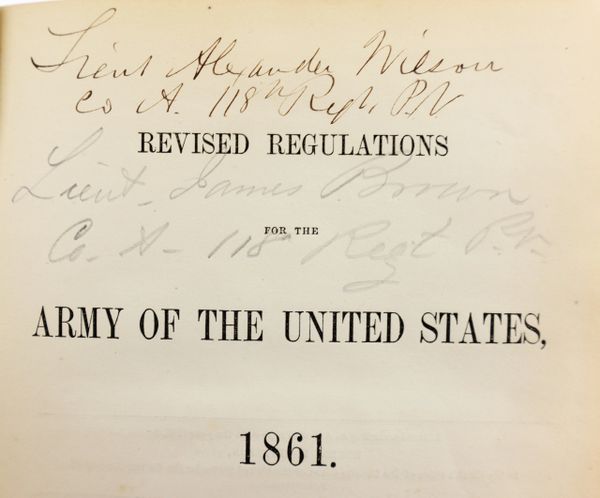 Lieut Alexander Wilson
Co A. 118th Regt. P.V
REVISED REGULATIONS
Lieut. James Brown
FOR THE
Co. A - 118th Regt P.V.
ARMY OF THE UNITED STATES,
1861.